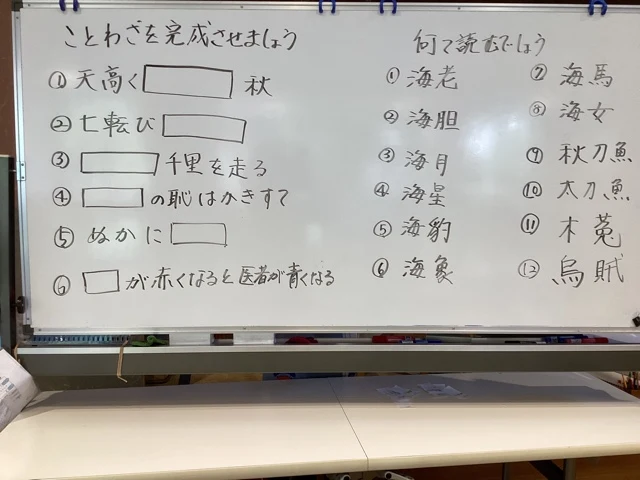 ことわざを完成させましょう
①天高く 秋
②七転び
③ 千里を走る
④ の恥はかきすて
⑤ぬかに
⑥ が赤くなると医者が青くなる
何て読むでしょう
①海老
②海胆
③海月
④海星
⑤海豹
⑥海象
⑦海馬
⑧海女
⑨秋刀魚
⑩太刀魚
⑪木菟
⑫烏賊